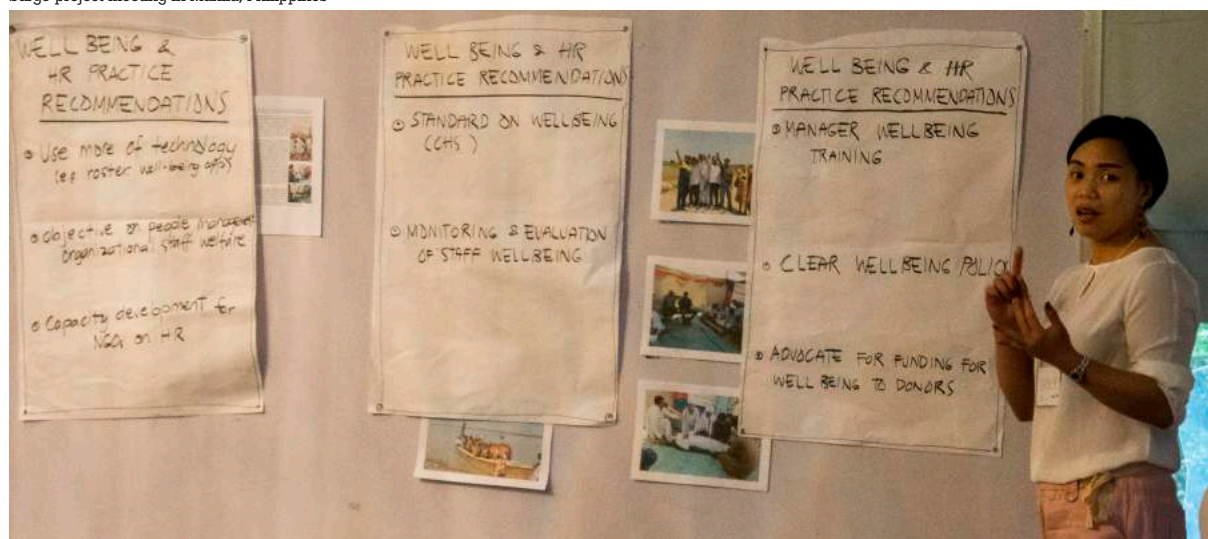 WELL BEING &
HR PRACTICE
RECOMMENDATIONS
Use more of technology
(eg roster well-being apps)
objective on people management
organizational staff welfare
Capacity development for
NGOs on HR
WELL BEING & HR
PRACTICE RECOMMENDATIONS
STANDARD ON WELLBEING
(CHS)
MONITORING & EVALUATION
OF STAFF WELLBEING
WELL BEING & HR
PRACTICE RECOMMENDATIONS
MANAGER WELLBEING
TRAINING
CLEAR WELLBEING POLICY
ADVOCATE FOR FUNDING FOR
WELL BEING TO DONORS